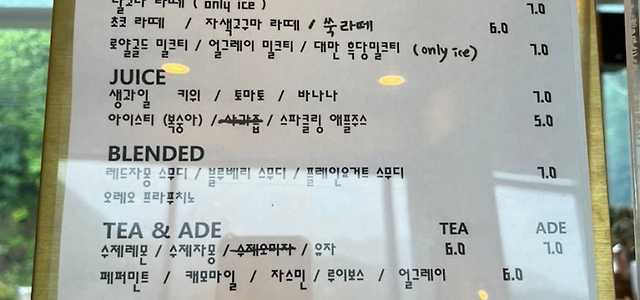 달고나 라떼 ( only ice ) 7.0
초코 라떼 / 자색고구마 라떼 / 쑥라떼 6.0
로얄골드 밀크티 / 얼그레이 밀크티 / 대만 흑당밀크티 (only ice) 7.0
JUICE
생과일 키위 / 토마토 / 바나나 7.0
아이스티 (복숭아) / 사과즙 / 스파클링 애플주스 5.0
BLENDED
레드자몽 스무디 / 블루베리 스무디 / 플레인요거트 스무디 7.0
오레오 프라푸치노
TEA & ADE TEA ADE
수제레몬 / 수제자몽 / 수제오미자 / 유자 6.0 7.0
페퍼민트 / 캐모마일 / 자스민 / 루이보스 / 얼그레이 6.0